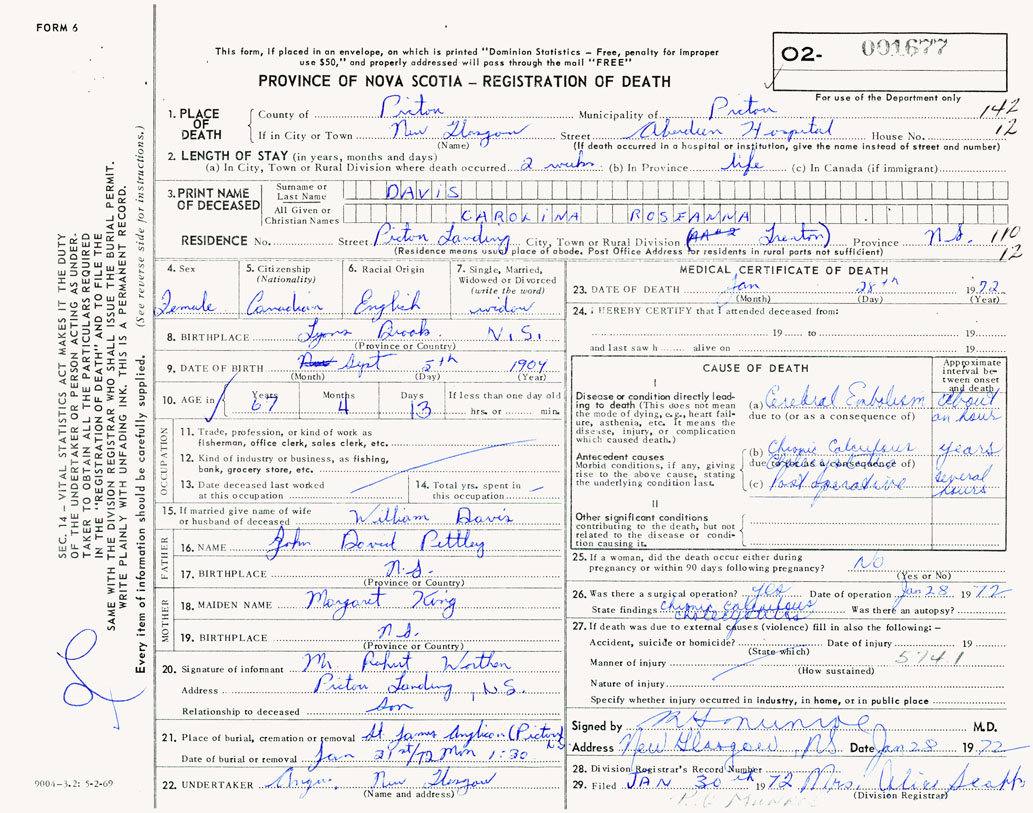 FORM 6
This form, if placed in an envelope, on which is printed "Dominion Statistics – Free, penalty for improper
use $50," and properly addressed will pass through the mail "FREE"
PROVINCE OF NOVA SCOTIA – REGISTRATION OF DEATH
O2- 001677
For use of the Department only
1. PLACE OF DEATH
County of Picton Municipality of Picton 142
If in City or Town New Glasgow Street Aberdeen Hospital House No. 12
(Name) (If death occurred in a hospital or institution, give the name instead of street and number)
2. LENGTH OF STAY (in years, months and days)
(a) In City, Town or Rural Division where death occurred 2 weeks (b) In Province life (c) In Canada (if immigrant)
3. PRINT NAME OF DECEASED
Surname or Last Name DAVIS
All Given or Christian Names CAROLINA ROSEANNA
RESIDENCE No. Street Picton Landing City, Town or Rural Division Trenton) Province N.S. 110
(Residence means usual place of abode. Post Office Address for residents in rural parts not sufficient) 12
4. Sex 5. Citizenship (Nationality) 6. Racial Origin 7. Single, Married, Widowed or Divorced (write the word)
Female Canadian English widow
8. BIRTHPLACE Lyons Brook N.S.
(Province or Country)
9. DATE OF BIRTH Sept 5th 1904
(Month) (Day) (Year)
10. AGE in Years Months Days If less than one day old
67 4 13 hrs. or min.
OCCUPATION
11. Trade, profession, or kind of work as
fisherman, office clerk, sales clerk, etc.
12. Kind of industry or business, as fishing,
bank, grocery store, etc.
13. Date deceased last worked
at this occupation
14. Total yrs. spent in
this occupation
15. If married give name of wife
or husband of deceased William Davis
FATHER
16. NAME John David Pettley
17. BIRTHPLACE N.S.
(Province or Country)
MOTHER
18. MAIDEN NAME Margaret King
19. BIRTHPLACE N.S.
(Province or Country)
20. Signature of informant Mr. Robert Worthen
Address Picton Landing, N.S.
Relationship to deceased Son
21. Place of burial, cremation or removal St James Anglican (Picton N.S.
Date of burial or removal Jan 31st/72 Mon 1:30
22. UNDERTAKER Angus New Glasgow
(Name and address)
MEDICAL CERTIFICATE OF DEATH
23. DATE OF DEATH Jan 28th 1972
(Month) (Day) (Year)
24. I HEREBY CERTIFY that I attended deceased from:
19 to 19
and last saw h alive on 19
CAUSE OF DEATH
Approximate interval between onset and death
I
Disease or condition directly leading to death (This does not mean the mode of dying, e.g., heart failure, asthenia, etc. It means the disease, injury, or complication which caused death.)
(a) Cerebral Embolism about an hour
due to (or as a consequence of)
Antecedent causes
Morbid conditions, if any, giving rise to the above cause, stating the underlying condition last.
(b) Chronic Calculous years
due to (or as a consequence of)
(c) Post operative several hours
II
Other significant conditions
contributing to the death, but not
related to the disease or condition causing it.
25. If a woman, did the death occur either during
pregnancy or within 90 days following pregnancy? NO
(Yes or No)
26. Was there a surgical operation? yes Date of operation Jan 28 1972
State findings chronic calculous cholecystitis Was there an autopsy?
27. If death was due to external causes (violence) fill in also the following:–
Accident, suicide or homicide? Date of injury 19
(State which) 5741
Manner of injury
(How sustained)
Nature of injury
Specify whether injury occurred in industry, in home, or in public place
Signed by M H Munroe M.D.
Address New Glasgow, N.S. Date Jan 28 1972
28. Division Registrar's Record Number
29. Filed JAN 30th 1972 Mrs. Alice
(Division Registrar)
SEC. 14 – VITAL STATISTICS ACT MAKES IT THE DUTY
OF THE UNDERTAKER OR PERSON ACTING AS UNDER-
TAKER TO OBTAIN ALL THE PARTICULARS REQUIRED
IN THE "REGISTRATION OF DEATH" AND TO FILE THE
SAME WITH THE DIVISION REGISTRAR WHO SHALL ISSUE THE BURIAL PERMIT.
WRITE PLAINLY WITH UNFADING INK. THIS IS A PERMANENT RECORD.
Every item of information should be carefully supplied. (See reverse side for instructions.)
9004–3.2: 5-2-69